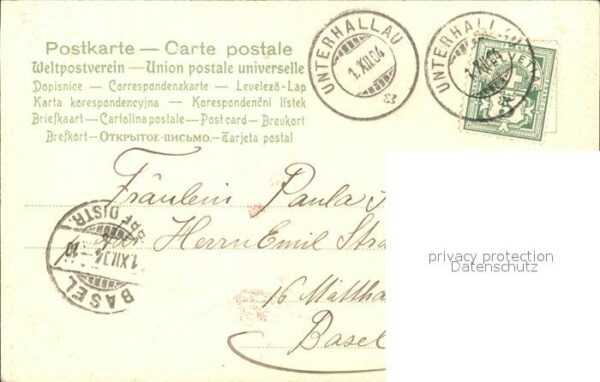 Postkarte — Carte postale
Weltpostverein — Union postale universelle
Dopisnice — Correspondenzkarte — Levelező-Lap
Karta korespondencyjna — Korespondenční lístek
Briefkaart — Cartolina postale — Post card — Brevkort
Brefkort — Открытое письмо. — Tarjeta postal
UNTERHALLAU
1.XII.04
UNTERHALLAU
HELVETIA
Fräulein Paula
Herrn Emil Stra
16 Mattha
Basel
BASEL
1.XII.04
BRF. DISTR.
privacy protection
Datenschutz